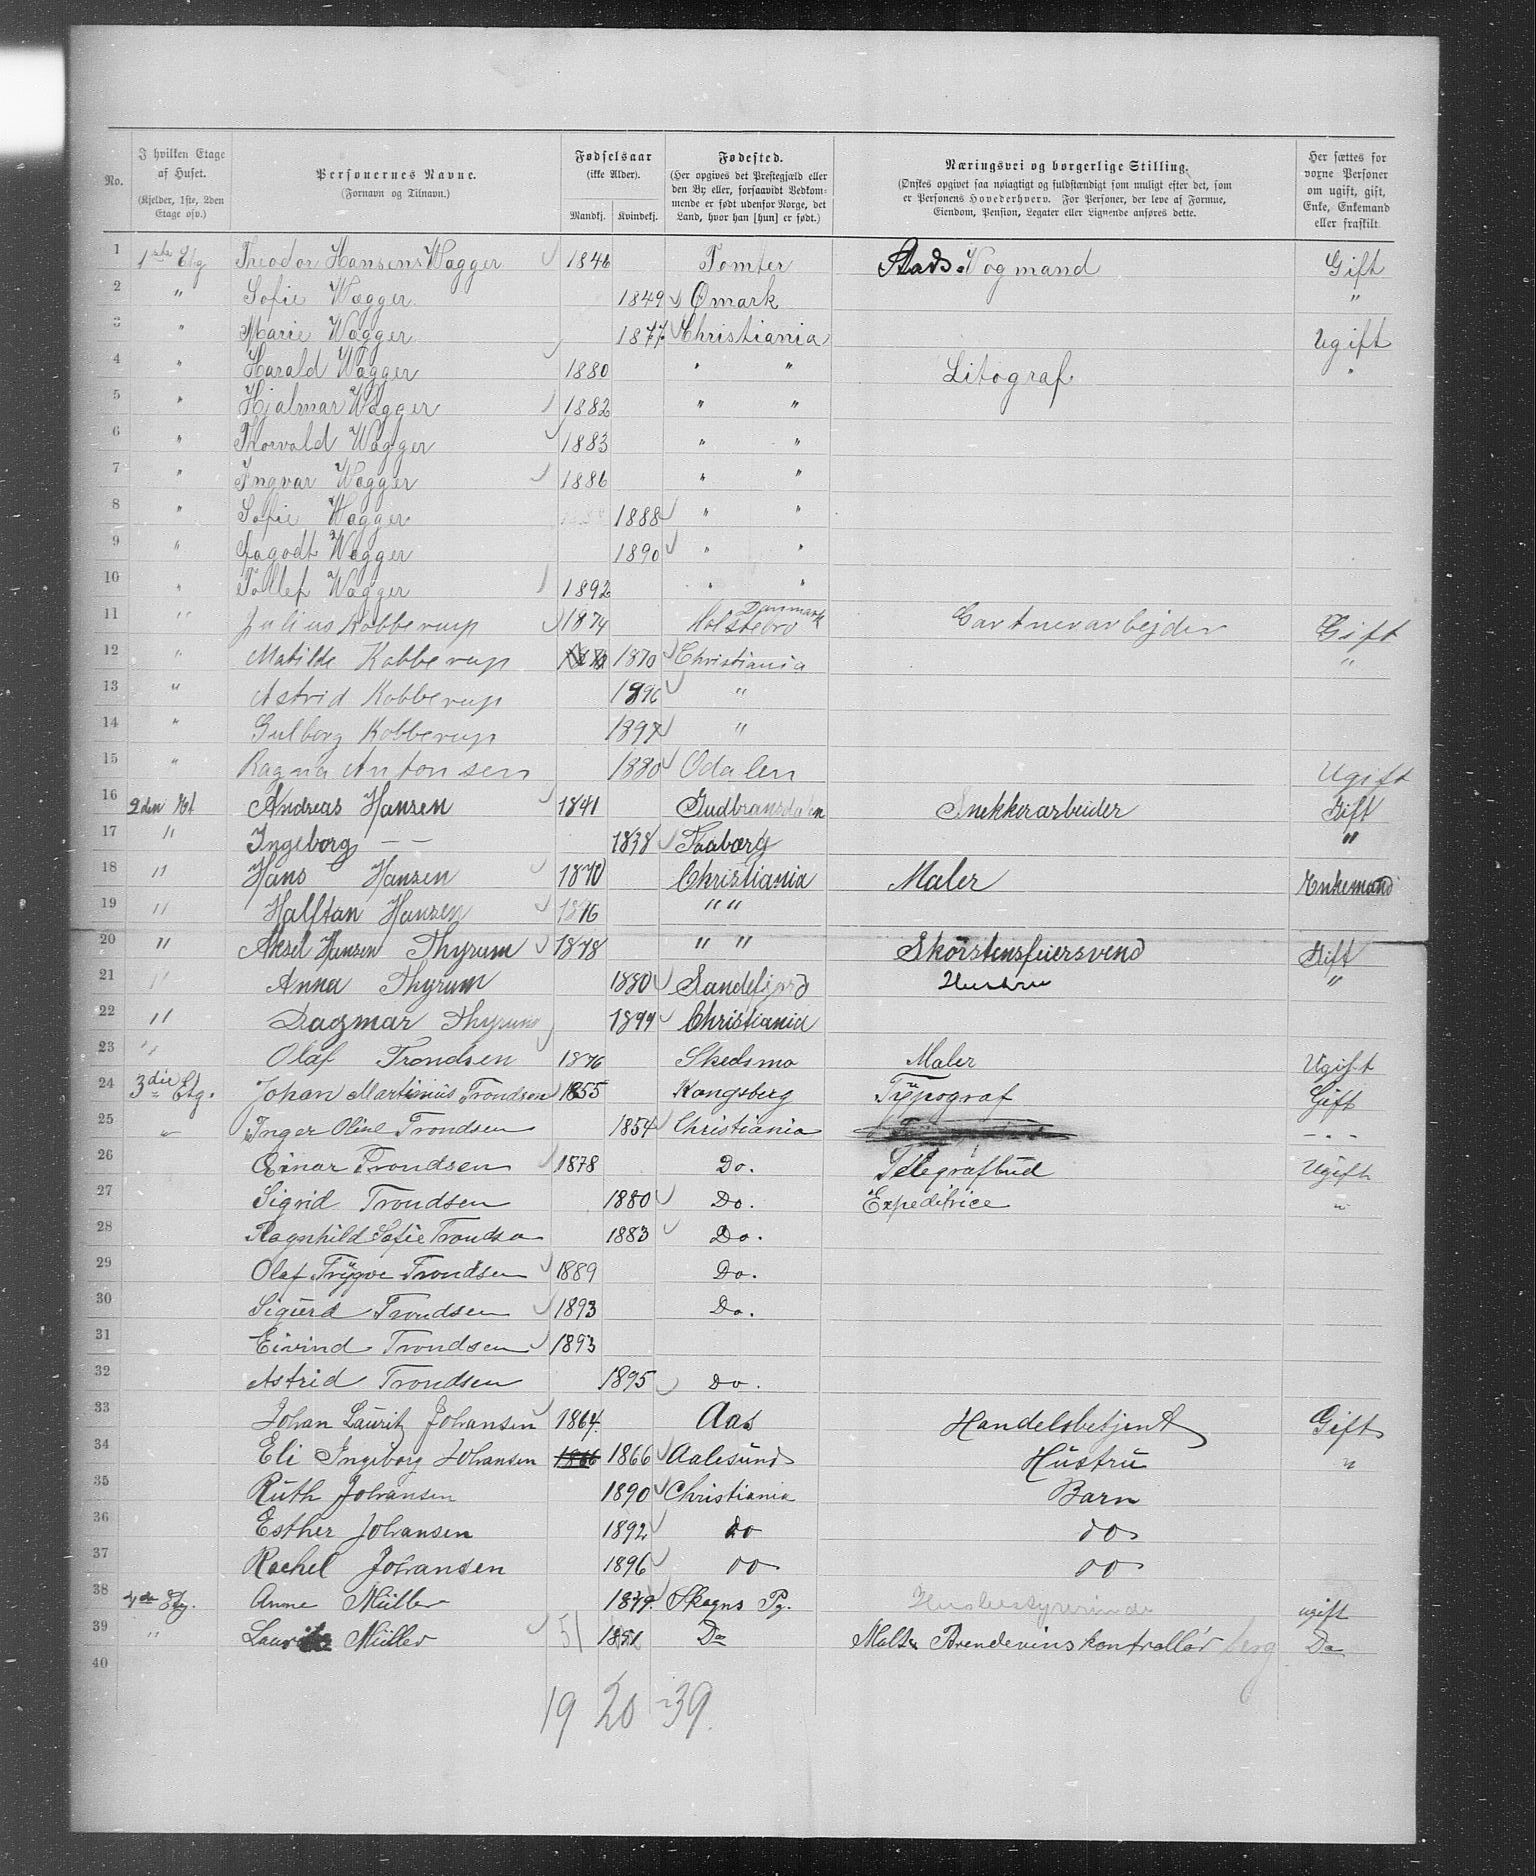 No. | I hvilken Etage af Huset. (Kjelder, 1ste, 2den Etage osv.) | Personernes Navne. (Fornavn og Tilnavn.) | Fødselsaar (ikke Alder). Mandkj. | Kvindekj. | Fødested. (Her opgives det Prestegjæld eller den By eller, forsaavidt Vedkommende er født udenfor Norge, det Land, hvor han [hun] er født.) | Næringsvei og borgerlige Stilling. (Ønskes opgivet saa nøiagtigt og fuldstændigt som muligt efter det, som er Personens Hovederhverv. For Personer, der leve af Formue, Eiendom, Pension, Legater eller Lignende anføres dette. | Her sættes for voxne Personer om ugift, gift, Enke, Enkemand eller fraskilt.
1 1ste Etg Theodor Hansens Wagger 1846 Tomter Stads-Vogmand Gift
2 " Sofie Wagger 1849 Omark "
3 " Marie Wagger 1877 Christiania Ugift
4 " Harald Wagger 1880 " " Litograf "
5 " Hjalmar Wagger 1882 " "
6 " Thorvald Wagger 1883 " "
7 " Ingvar Wagger 1886 " "
8 " Sofie Wagger 1888 " "
9 " Aagodt Wagger 1890 " "
10 " Tollef Wagger 1892 " "
11 " Julius Kobberup 1874 Holstebro Danmark Gartnerarbejder Gift
12 " Matilde Kobberup 1870 Christiania "
13 " Astrid Kobberup 1896 "
14 " Gulborg Kobberup 1897 "
15 " Ragna Antonsen 1880 Odalen Ugift
16 2den Et Andreas Hansen 1841 Gudbransdalen Snekkerarbeider Gift
17 " Ingeborg — — 1838 Faaberg "
18 " Hans Hansen 1870 Christiania Maler Enkemand
19 " Halftan Hansen 1876 " "
20 " Aksel Hansen Thyrum 1878 " " Skorstensfeiersvend Gift
21 " Anna Thyrum 1880 Sandefjord Hustru "
22 " Dagmar Thyrum 1899 Christiania
23 " Olaf Trondsen 1876 Skedsmo Maler Ugift
24 3die Etg. Johan Martinius Trondsen 1855 Kongsberg Typograf Gift
25 " Inger Oline Trondsen 1854 Christiania - " -
26 Einar Trondsen 1878 Do. Telegrafbud Ugift
27 Sigrid Trondsen 1880 Do. Expeditrice "
28 Ragnhild Sofie Trondse 1883 Do.
29 Olaf Trygve Trondsen 1889 Do.
30 Sigurd Trondsen 1893 Do.
31 Eivind Trondsen 1893
32 Astrid Trondsen 1895 Do.
33 Johan Lauritz Johansen 1864. Aas Handelsbetjent Gift
34 Eli Ingeborg Johansen 1866 1866 Aalesund Hustru "
35 Ruth Johansen 1890 Christiania Barn
36 Esther Johansen 1892 do do
37 Rachel Johansen 1896 do do
38 4de Etg. Anne Müller 1879. Skogns Pg. Husbestyrerinde ugift
39 " Müller 51 1851 Do Malt & Brendevinskontrollør Do
40
19 20 -39.